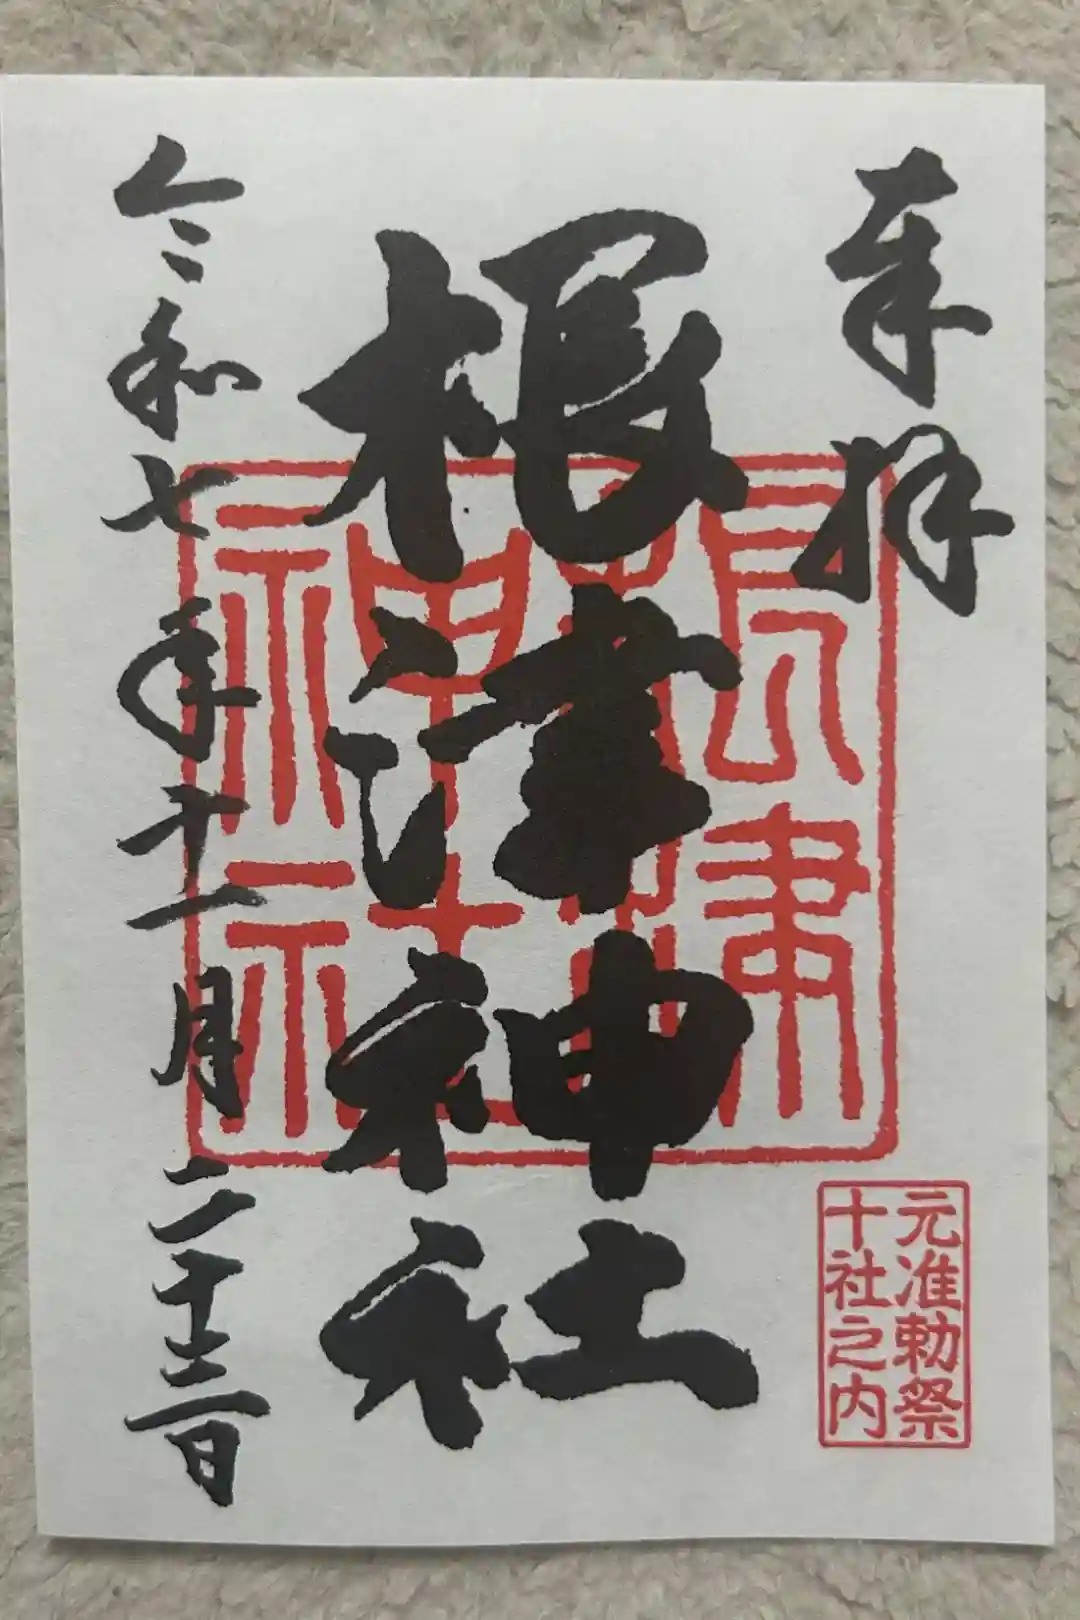 奉拝
元准勅祭
十社之内
根津神社
根津
神社
令和七年十一月二十三日